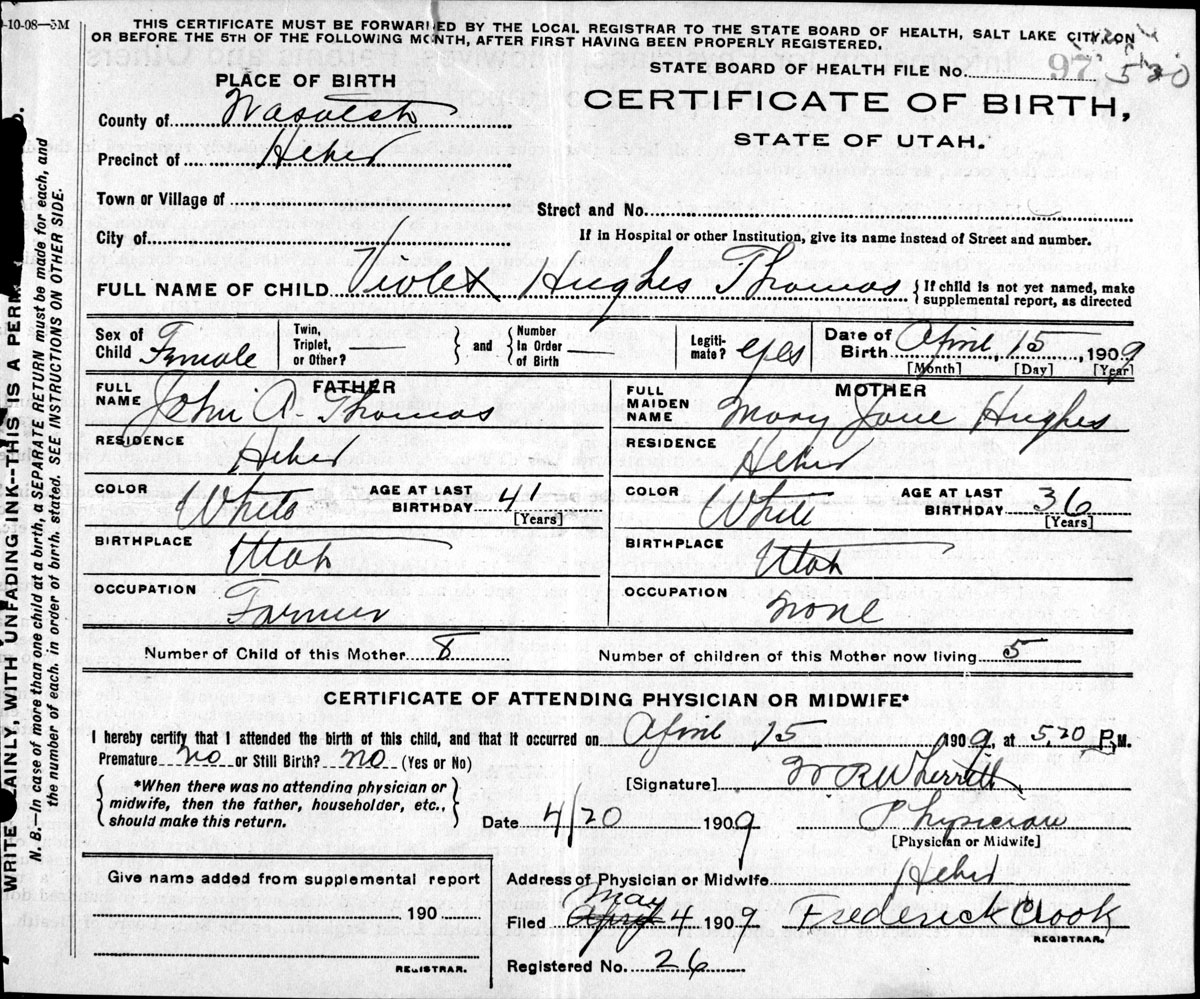 0-10-08—5M
THIS CERTIFICATE MUST BE FORWARDED BY THE LOCAL REGISTRAR TO THE STATE BOARD OF HEALTH, SALT LAKE CITY, ON
OR BEFORE THE 5TH OF THE FOLLOWING MONTH, AFTER FIRST HAVING BEEN PROPERLY REGISTERED.
PLACE OF BIRTH
STATE BOARD OF HEALTH FILE NO. 97 520
County of Wasatch
CERTIFICATE OF BIRTH,
STATE OF UTAH.
Precinct of Heber
Town or Village of
Street and No.
City of
If in Hospital or other Institution, give its name instead of Street and number.
FULL NAME OF CHILD Violet Hughes Thomas { If child is not yet named, make
supplemental report, as directed
Sex of Child Female
Twin, Triplet, or Other? —
} and {
Number In Order of Birth —
Legiti-mate? yes
Date of Birth April, 15, 1909
[Month] [Day] [Year]
FATHER
FULL NAME John A. Thomas
RESIDENCE Heber
COLOR White AGE AT LAST BIRTHDAY 41
[Years]
BIRTHPLACE Utah
OCCUPATION Farmer
MOTHER
FULL MAIDEN NAME Mary Jane Hughes
RESIDENCE Heber
COLOR White AGE AT LAST BIRTHDAY 36
[Years]
BIRTHPLACE Utah
OCCUPATION None
Number of Child of this Mother 8 Number of children of this Mother now living 5
CERTIFICATE OF ATTENDING PHYSICIAN OR MIDWIFE*
I hereby certify that I attended the birth of this child, and that it occurred on April 15 1909, at 5,20 P.M.
Premature no or Still Birth? no (Yes or No)
[Signature] W R Wherritt
{ *When there was no attending physician or
midwife, then the father, householder, etc.,
should make this return. }
Date 4/20 1909 Physician
[Physician or Midwife]
Give name added from supplemental report
190
REGISTRAR.
Address of Physician or Midwife Heber
May
Filed April 4 1909 Frederick Crook
REGISTRAR.
Registered No. 26
WRITE PLAINLY, WITH UNFADING INK--THIS IS A PERM
N. B.—In case of more than one child at a birth, a SEPARATE RETURN must be made for each, and
the number of each, in order of birth, stated. SEE INSTRUCTIONS ON OTHER SIDE.